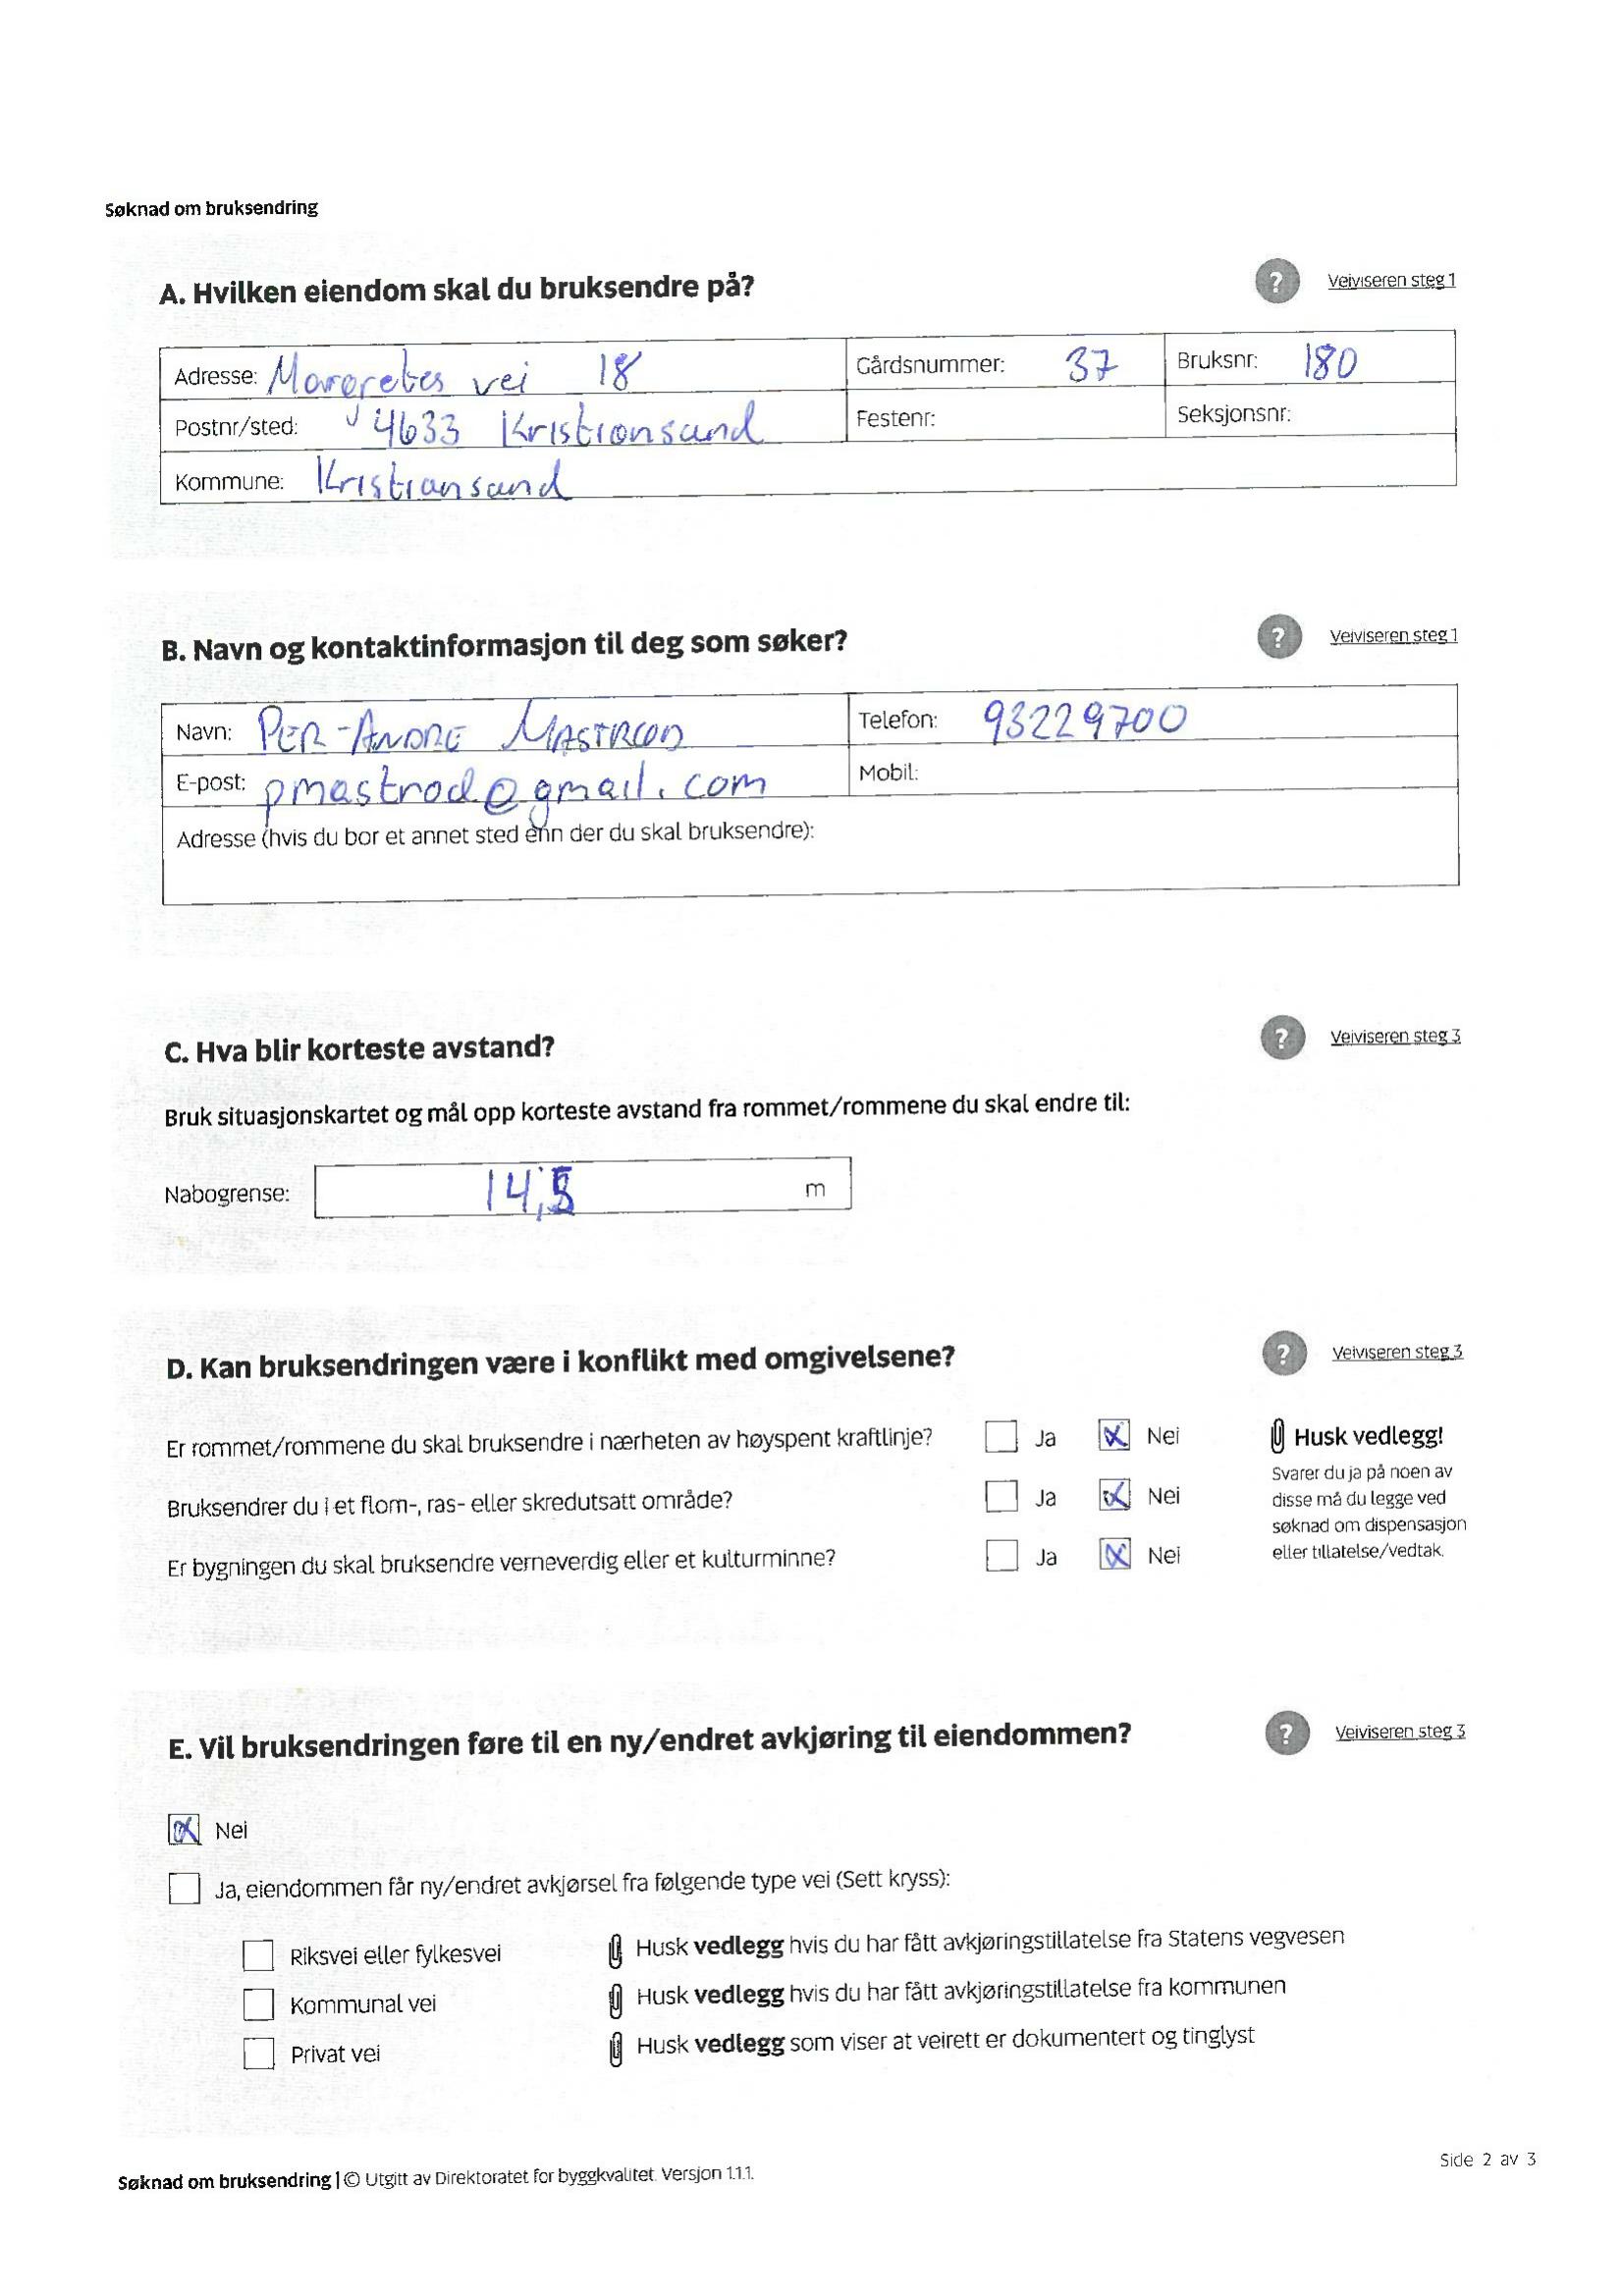 Søknad om bruksendring
A. Hvilken eiendom skal du bruksendre på?
? Veiviseren steg 1
Adresse: Margretes vei 18
Gårdsnummer: 37
Bruksnr: 180
Postnr/sted: 4633 Kristiansand
Festenr:
Seksjonsnr:
Kommune: Kristiansand
B. Navn og kontaktinformasjon til deg som søker?
? Veiviseren steg 1
Navn: PER-ANDRE MASTROD
Telefon: 93229700
E-post: pmastrod@gmail.com
Mobil:
Adresse (hvis du bor et annet sted enn der du skal bruksendre):
C. Hva blir korteste avstand?
? Veiviseren steg 3
Bruk situasjonskartet og mål opp korteste avstand fra rommet/rommene du skal endre til:
Nabogrense: 14,5 m
D. Kan bruksendringen være i konflikt med omgivelsene?
? Veiviseren steg 3
Er rommet/rommene du skal bruksendre i nærheten av høyspent kraftlinje? Ja X Nei
Bruksendrer du i et flom-, ras- eller skredutsatt område? Ja X Nei
Er bygningen du skal bruksendre verneverdig eller et kulturminne? Ja X Nei
Husk vedlegg!
Svarer du ja på noen av
disse må du legge ved
søknad om dispensasjon
eller tillatelse/vedtak.
E. Vil bruksendringen føre til en ny/endret avkjøring til eiendommen?
? Veiviseren steg 3
X Nei
Ja, eiendommen får ny/endret avkjørsel fra følgende type vei (Sett kryss):
Riksvei eller fylkesvei Husk vedlegg hvis du har fått avkjøringstillatelse fra Statens vegvesen
Kommunal vei Husk vedlegg hvis du har fått avkjøringstillatelse fra kommunen
Privat vei Husk vedlegg som viser at veirett er dokumentert og tinglyst
Side 2 av 3
Søknad om bruksendring | © Utgitt av Direktoratet for byggkvalitet. Versjon 1.1.1.